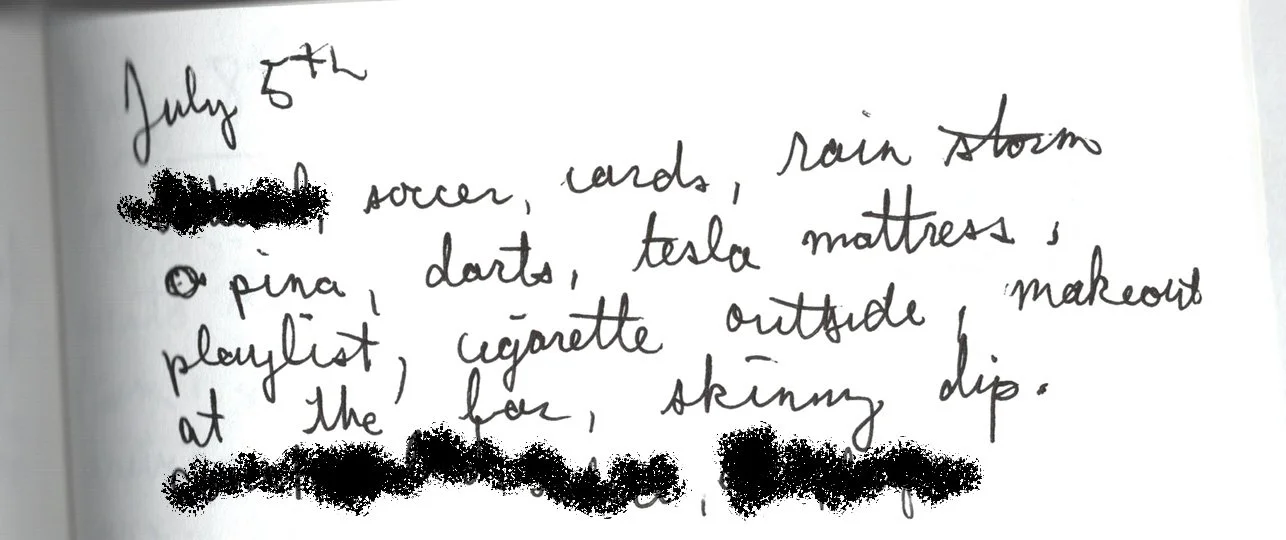 July 5th
, soccer, cards, rain storm
pina, darts, tesla mattress,
playlist, cigarette outside, makeout
at the bar, skinny dip.
,